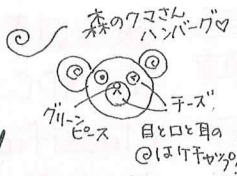 森のクマさん
ハンバーグ♡
グリーン
ピース
チーズ
目と口と耳の
@はケチャップ!